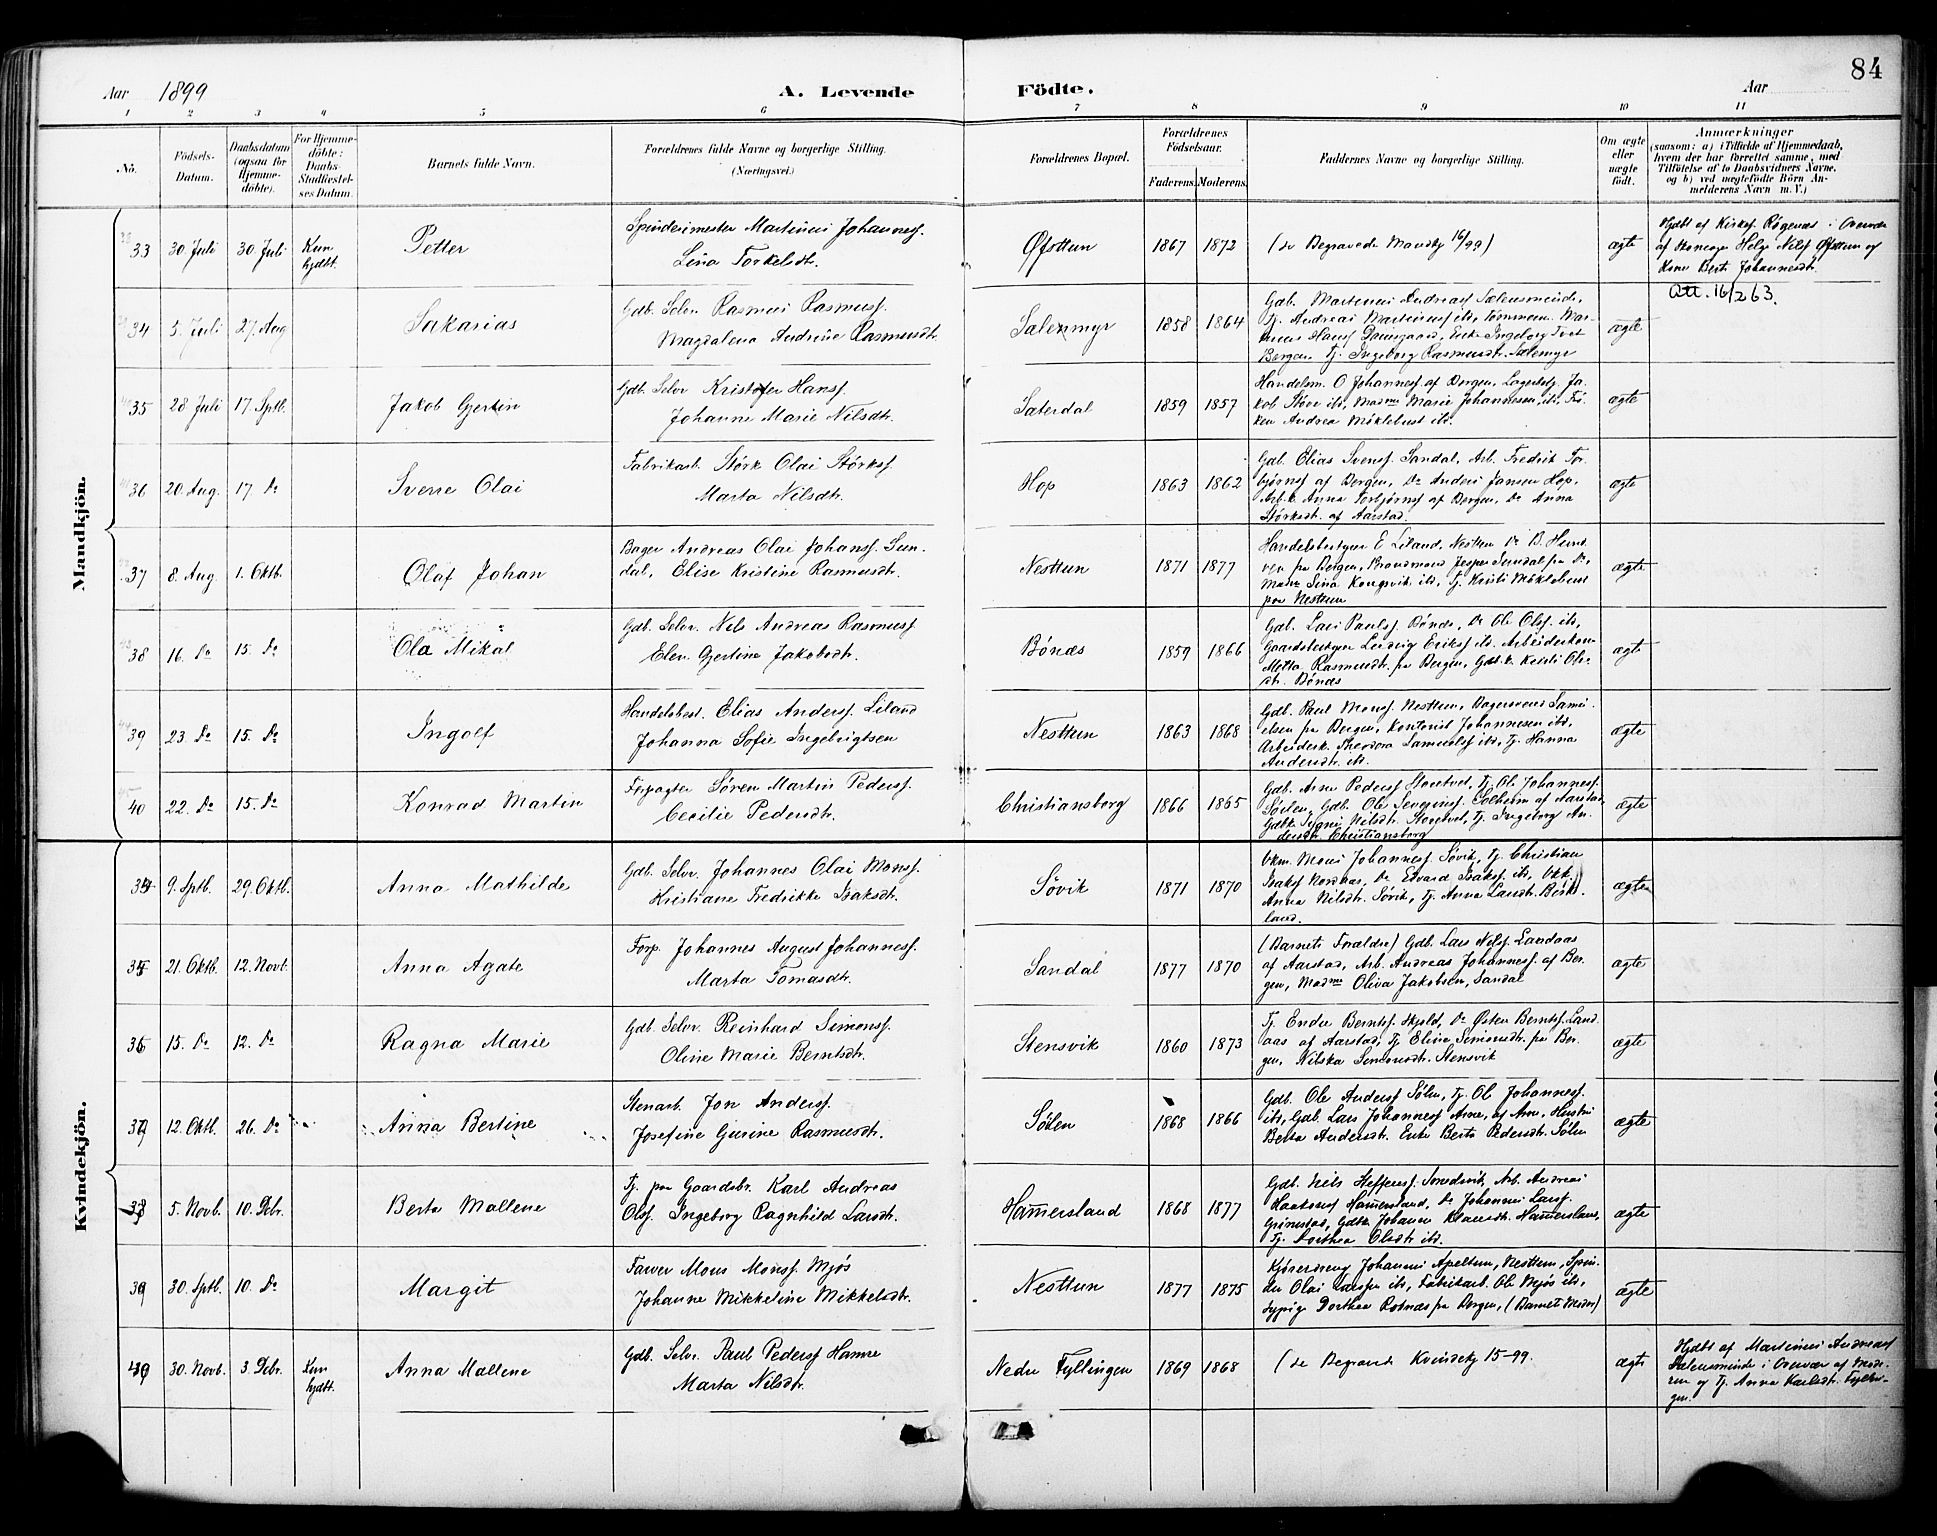 84
Aar 1899 A. Levende Födte. Aar
1 2 3 4 5 6 7 8 9 10 11
No. Födsels-Datum. Daabsdatum (ogsaa for Hjemme-döbte). For Hjemme-döbte: Daabs-Stadfæstel-ses Datum. Barnets fulde Navn. Forældrenes fulde Navne og borgerlige Stilling. (Næringsvei.) Forældrenes Bopæl. Forældrenes Födselsaar. Faderens. Moderens. Faddernes Navne og borgerlige Stilling. Om ægte eller uægte födt. Anmærkninger (saasom: a) i Tilfælde af Hjemmedaab, hvem der har forrettet samme, med Tilföielse af to Daabsvidners Navne, og b) ved uægtefödte Börn An-melderens Navn m. V.)
Mandkjön.
33 30 Juli 30 Juli Kun hjdbt. Petter Spinderimester Martinus Johannesf.
Lina Torkelsdtr. Øfsttun 1867 1872 (se Begravede Mandkj 16/99) ægte Hjdbt af Kirkes. Røgenæs i Overvær
af Stenarb. Helge Nilsf Øfsttun og
Kone Berta Johannesdtr.
Att. 16/2 63.
34 5. Juli 27. Aug Sakarias Gdb. Selv. Rasmus Rasmusf.
Magdalena Andrine Rasmusdtr. Sælenmyr 1858 1864 Gdb. Martinus Andreasf Sælensminde,
Tj. Andreas Martinusf ibd, Tømmerm. Mar-
tinus Hansf Damsgaard, Enke Ingeborg Tvet
Bergen, Tj. Ingeborg Rasmusdtr. Sælemyr ægte
35 28 Juli 17. Sptb. Jakob Gjertin Gdb. Selv Kristofer Hansf.
Johanne Marie Nilsdtr. Sæterdal 1859 1857 Handelsm. O Johannesf af Bergen, Lagerbetj. Ja-
kob Støve ibd, Madme Marie Johannesen, ibd, Frø-
ken Andrea Møklebust ibd. ægte
36 20. Aug. 17. Do Sverre Olai Fabrikarb. Størk Olai Størksf.
Marta Nilsdtr. Hop 1863 1862 Gdb. Elias Svensf. Sandal, Arb. Fredrik Tor-
bjørnsf af Bergen, Do Anders Jansen Hop,
Arb.k. Anna Torbjørnsf af Bergen, Do Anna
Størksdtr. af Aarstad. ægte
37 8. Aug. 1. Oktb. Olaf Johan Bager Andreas Olai Johansf. Sun-
dal, Elise Kristine Rasmusdtr. Nesttun 1871 1877 Handelsbestyrer E Liland, Nesttun Do B.
pa Bergen, Brandmand Jesper Sundal fra Do,
Madm Lina Kongsvik ibd, Tj. Kristi Møklebust
paa Nesttun ægte
38 16. Do 15. Do Ola Mikal Gdb. Selv. Nils Andreas Rasmusf
Elen Gjertine Jakobsdtr. Bønæs 1859 1866 Gdb. Lars Paulsf. Bønæs, Do Ole Olsf. ibd,
Gaardsbestyrer Ludvig Eriksf ibd. Arbeiderkone
Metta Rasmusdtr. fra Bergen, Gdb.k. Kristi Ols-
dtr. Bønæs ægte
39 23 Do 15. Do Ingolf Handelsbest. Elias Andersf. Liland
Johanna Sofie Ingebrigtsen Nesttun 1863 1868 Gdb. Paul Monsf. Nesttun, Bagersvend Samu-
elsen fra Bergen, Kontorist Johannesen ibd,
Arbeidersk. Theodora Samuelsf ibd, Tj. Hanna
Andersdtr. ibd. ægte
40 22. Do 15. Do Konrad Martin Forpagter Søren Martin Pedersf.
Cecilie Pedersdtr. Christiansborg 1866 1865 Gdb. Arne Pedersf Storetvet, Tj. Ole Johannesf.
Sælen, Gdb. Ole Severinsf. Solheim af Aarstad,
Gdbk. Signi Nilsdtr. Storetvet, Tj. Ingeborg An-
dersdtr. Christiansborg ægte
Kvindekjön.
34 9. Sptb. 29. Oktb. Anna Mathilde Gdb. Selv. Johannes Olai Monsf.
Kristiane Fredrikke Isaksdtr. Søvik 1871 1870 Mons Johannesf. Søvik, Tj. Christian
Isaksf Nordaas, Do Edvard Isaksf. ibd,
Anna Nilsdtr. Søvik, Tj. Anna Larsdtr. Birke-
land. ægte
35 21. Oktb. 12. Novb. Anna Agate Forp. Johannes August Johannesf.
Marta Tomasdtr. Sandal 1877 1870 (Barnets Forældre) Gdb. Lars Nilsf. Landaas
af Aarstad, Arb. Andreas Johannesf. af Ber-
gen, Madme Oliva Jakobsen, Sandal ægte
36 15. Do 12. Do Ragna Marie Gdb. Selv. Reinhard Simonsf.
Oline Marie Berntsdtr. Stensvik 1860 1873 Tj. Endre Berntsf. Skjold, Do Østen Berntsf. Land-
aas af Aarstad, Tj Eline Simonsdtr. fra Ber-
gen, Nilska Simonsdtr. Stensvik ægte
37 12. Oktb. 26. Do Anna Bertine Stenarb. Jon Andersf.
Josefine Gurine Rasmusdtr. Sølen 1868 1866 Gdb. Ole Andersf Sølen, Tj. Ol. Johannesf.
ibd, Gdb. Lars Johannesf Arne, af Arne, Hustru
Berta Andersdtr. Enke Berta Pedersdtr. Sølen ægte
38 5. Novb. 10. Debr. Berta Mallene Tj. paa Gaardsbr. Karl Andreas
Olsf. Ingeborg Ragnhild Larsdtr. Hamersland 1868 1877 Gdb. Nils Steffensf. Smedsvik, Arb. Andreas
Haakonsf Hamersland, Do Johannes Larsf.
Grimstad, Gdbk. Johanna Klausdtr. Hamersland,
Tj. Dorthea Olsdtr ibd. ægte
39 30. Sptb. 10. Do Margit Farver Mons Monsf. Mjøs
Johanne Mikkeline Mikkelsdtr. Nesttun 1877 1875 Kjøredreng Johannes Apeltun, Nesttun, Spin-
der Olai Larsen ibd, Fabrikarb. Ole Mjøs ibd,
Sypige Dorthea Rotnæs fra Bergen, (Barnets Moder) ægte
40 30. Novb. 3. Debr. Kun hjdbt. Anna Mallene Gdb. Selv. Paul Pedersf Hamre
Marta Nilsdtr. Nedre Fyllingen 1869 1868 (se Begravede Kvindekj 15-99. ægte Hjdbt af Martinus Andreasf
Sælensminde i Overvær af Mode-
ren og Tj. Anna Karlsdtr. Fyllin-
gen.